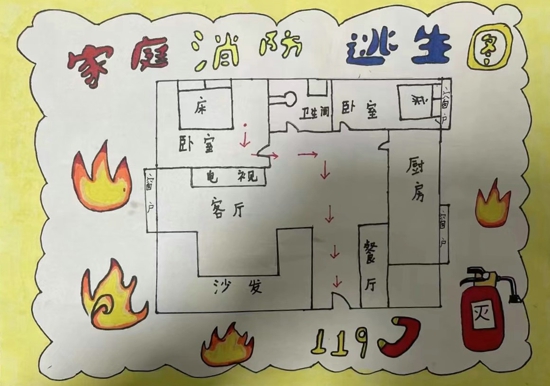 家庭消防逃生图
床
卫生间
卧室
床
窗户
卧室
电视
厨房
窗户
客厅
窗户
餐厅
沙发
119
灭